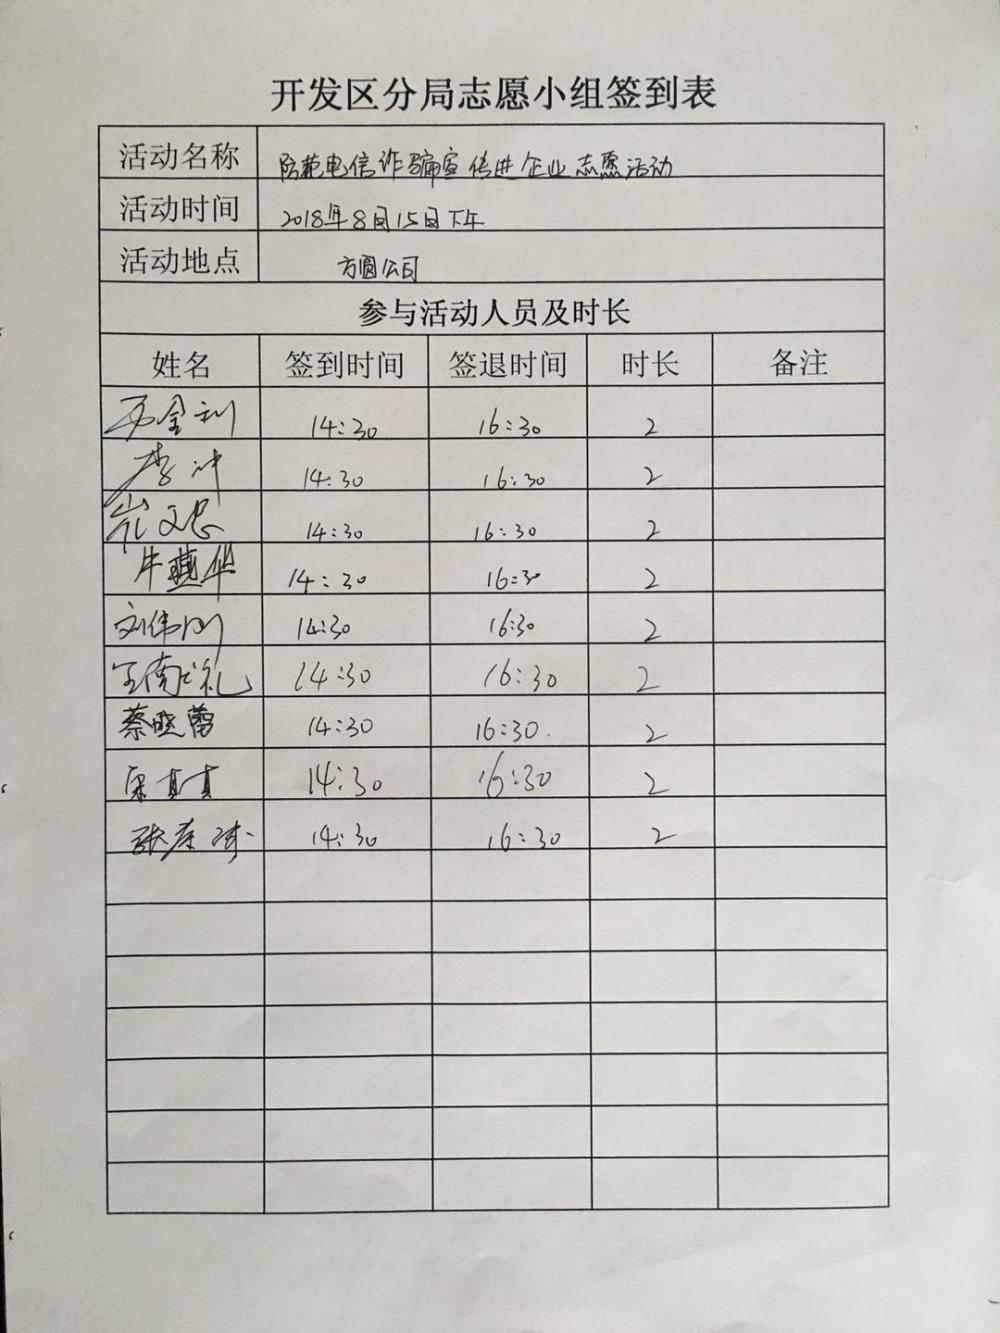 开发区分局志愿小组签到表
活动名称 防范电信诈骗宣传进企业志愿活动
活动时间 2018年8月15日下午
活动地点 方圆公司
参与活动人员及时长
姓名 签到时间 签退时间 时长 备注
14:30 16:30 2
李冲 14:30 16:30 2
崔文忠 14:30 16:30 2
牛燕华 14:30 16:30 2
刘伟刚 14:30 16:30 2
14:30 16:30 2
蔡晓蕾 14:30 16:30. 2
梁真真 14:30 16:30 2
14:30 16:30 2